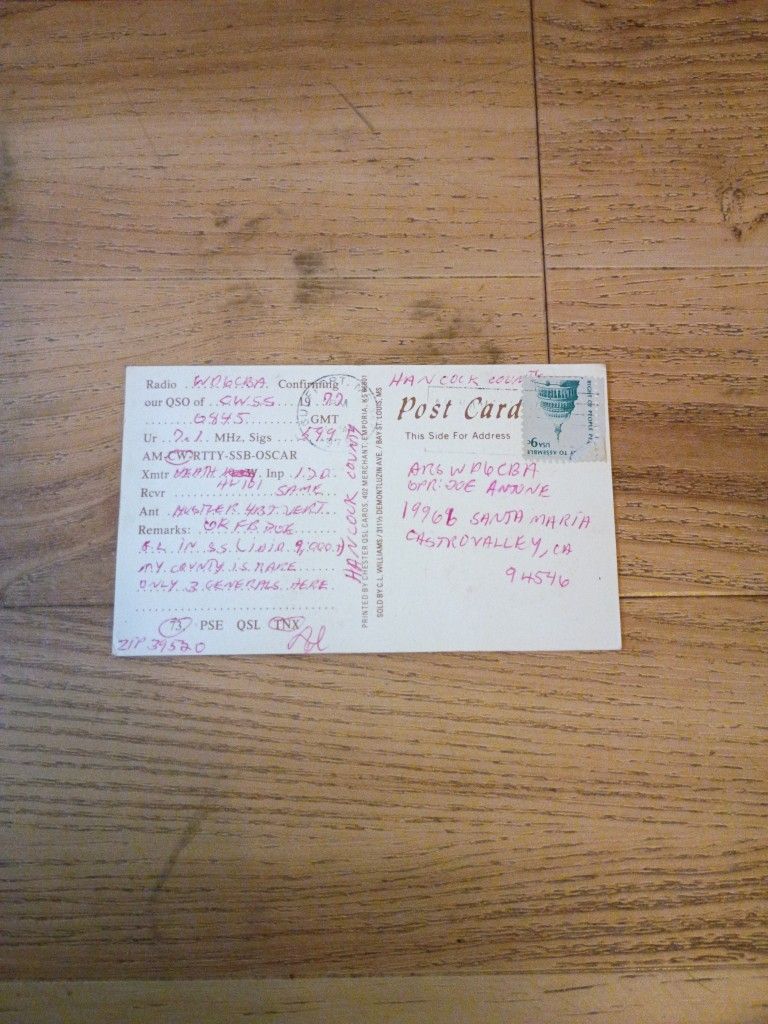 Radio .. WD6CBA. Confirming
our QSO of .. CWSS .. 19 . 77
0845 ..... GMT
Ur .. 7.1 .. MHz. Sigs .. 599
AM-CW-RTTY-SSB-OSCAR
Xmtr HEATH Inp . 100
HW 101
Rcvr ........ SAME
Ant .. HUSTLER 4BT VERT.
Remarks: OK FB JOE
MY COUNTY IS RARE
ONLY 3 GENERALS HERE
73 PSE QSL TNX
ZIP 39520
Al
HANCOCK COUNTY
PRINTED BY CHESTER QSL CARDS, 402 MERCHANT, EMPORIA, KS 66801
SOLD BY C.L. WILLIAMS / 311½ DEMONTLUZIN AVE. / BAY ST. LOUIS, MS
HANCOCK COUNTY
Post Card
This Side For Address
RIGHT OF PEOPLE
TO ASSEMBLE
USA 9c
ARS WD6CBA
OPR: JOE ANTONE
19966 SANTA MARIA
CASTRO VALLEY, CA
94546